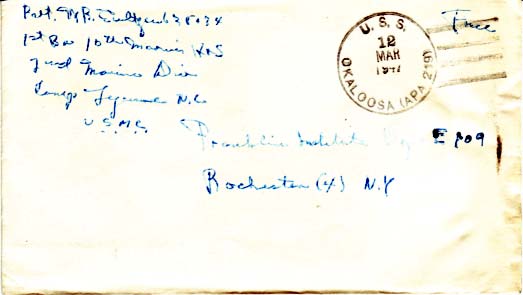 Pvt. M.R.
1st Bn 10th Marines H&S
2nd Marine Div
Camp Lejeune N.C.
U.S.M.C.
U.S.S.
12
MAR
194
OKALOOSA (APA 219)
Free
Franklin Institute E 209
Rochester (4) N.Y